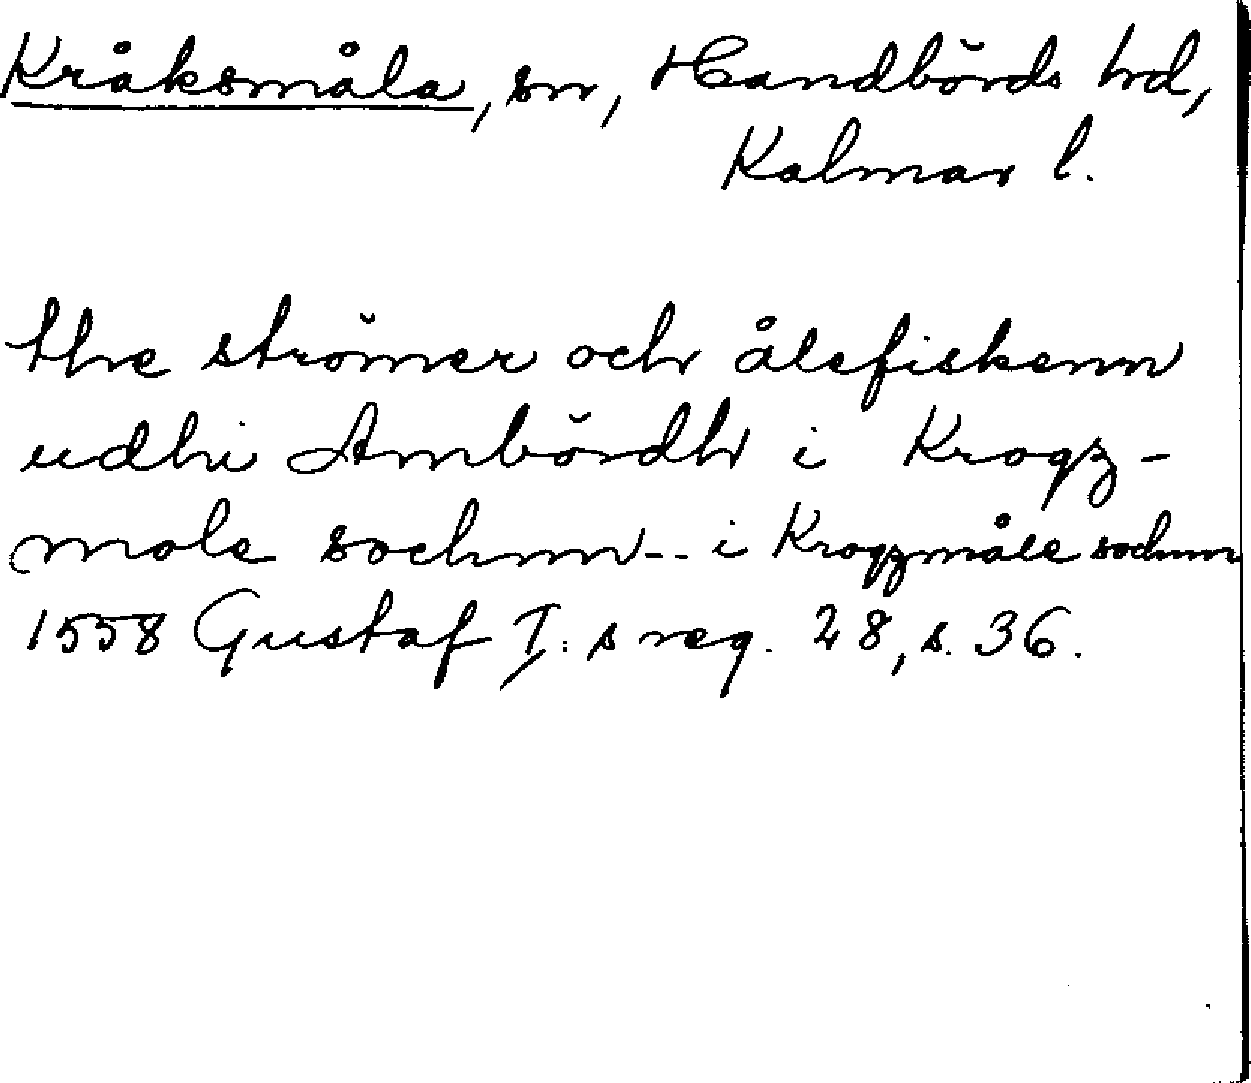 Kråksmåla, sn, Handbörds hd,
Kalmar l.
the strömer och ålefiskenn
udhi Ambördh i Krogz-
mole sochnn -- i Krogzmåle sochnn
1558 Gustaf I:s reg. 28, s. 36.